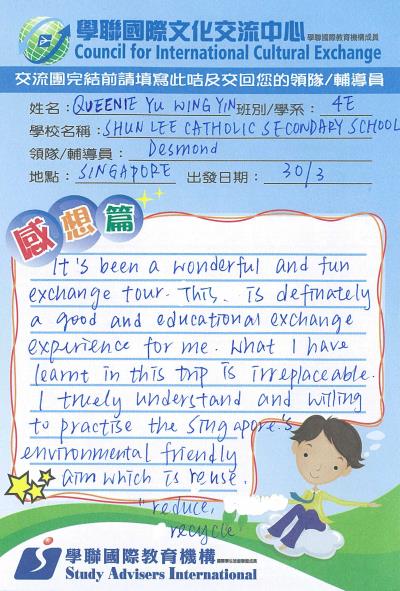 學聯國際文化交流中心 學聯國際教育機構成員
Council for International Cultural Exchange
交流團完結前請填寫此咭及交回您的領隊/輔導員
姓名:QUEENIE YU WING YIN 班別/學系: 4E
學校名稱:SHUN LEE CATHOLIC SECONDARY SCHOOL
領隊/輔導員: Desmond
地點: SINGAPORE 出發日期: 30/3
感想篇
It's been a wonderful and fun
exchange tour. This. is definately
a good and educational exchange
experience for me. What I have
learnt in this trip is irreplaceable.
I truely understand and willing
to practise the Singapore's
environmental friendly
aim which is reuse,
reduce,
recycle
學聯國際教育機構
Study Advisers International